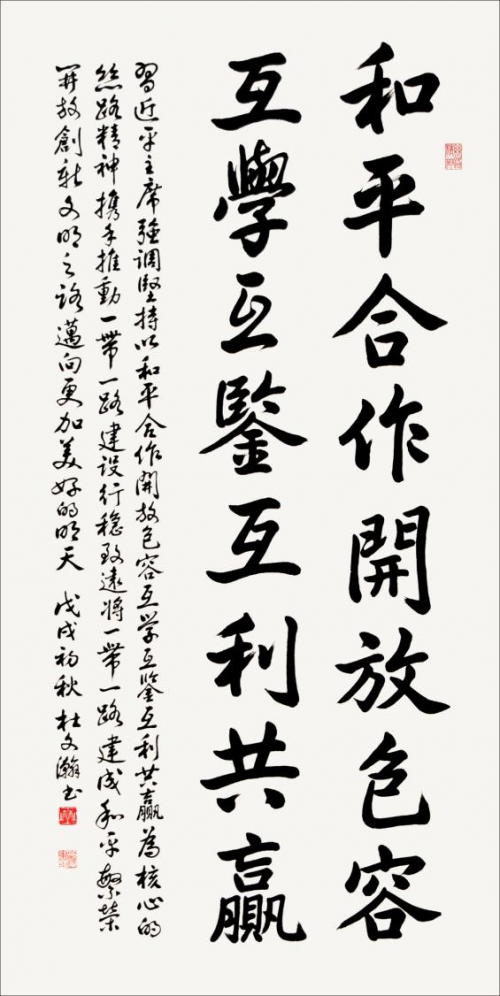 和平合作開放包容
互學互鑒互利共贏
習近平主席强調堅持以和平合作開放包容互学互鑒互利共贏為核心的
絲路精神携手推動一帶一路建设行穩致遠将一帶一路建成和平繁榮
開放創新文明之路邁向更加美好的明天 戊戌初秋 杜文瀚书